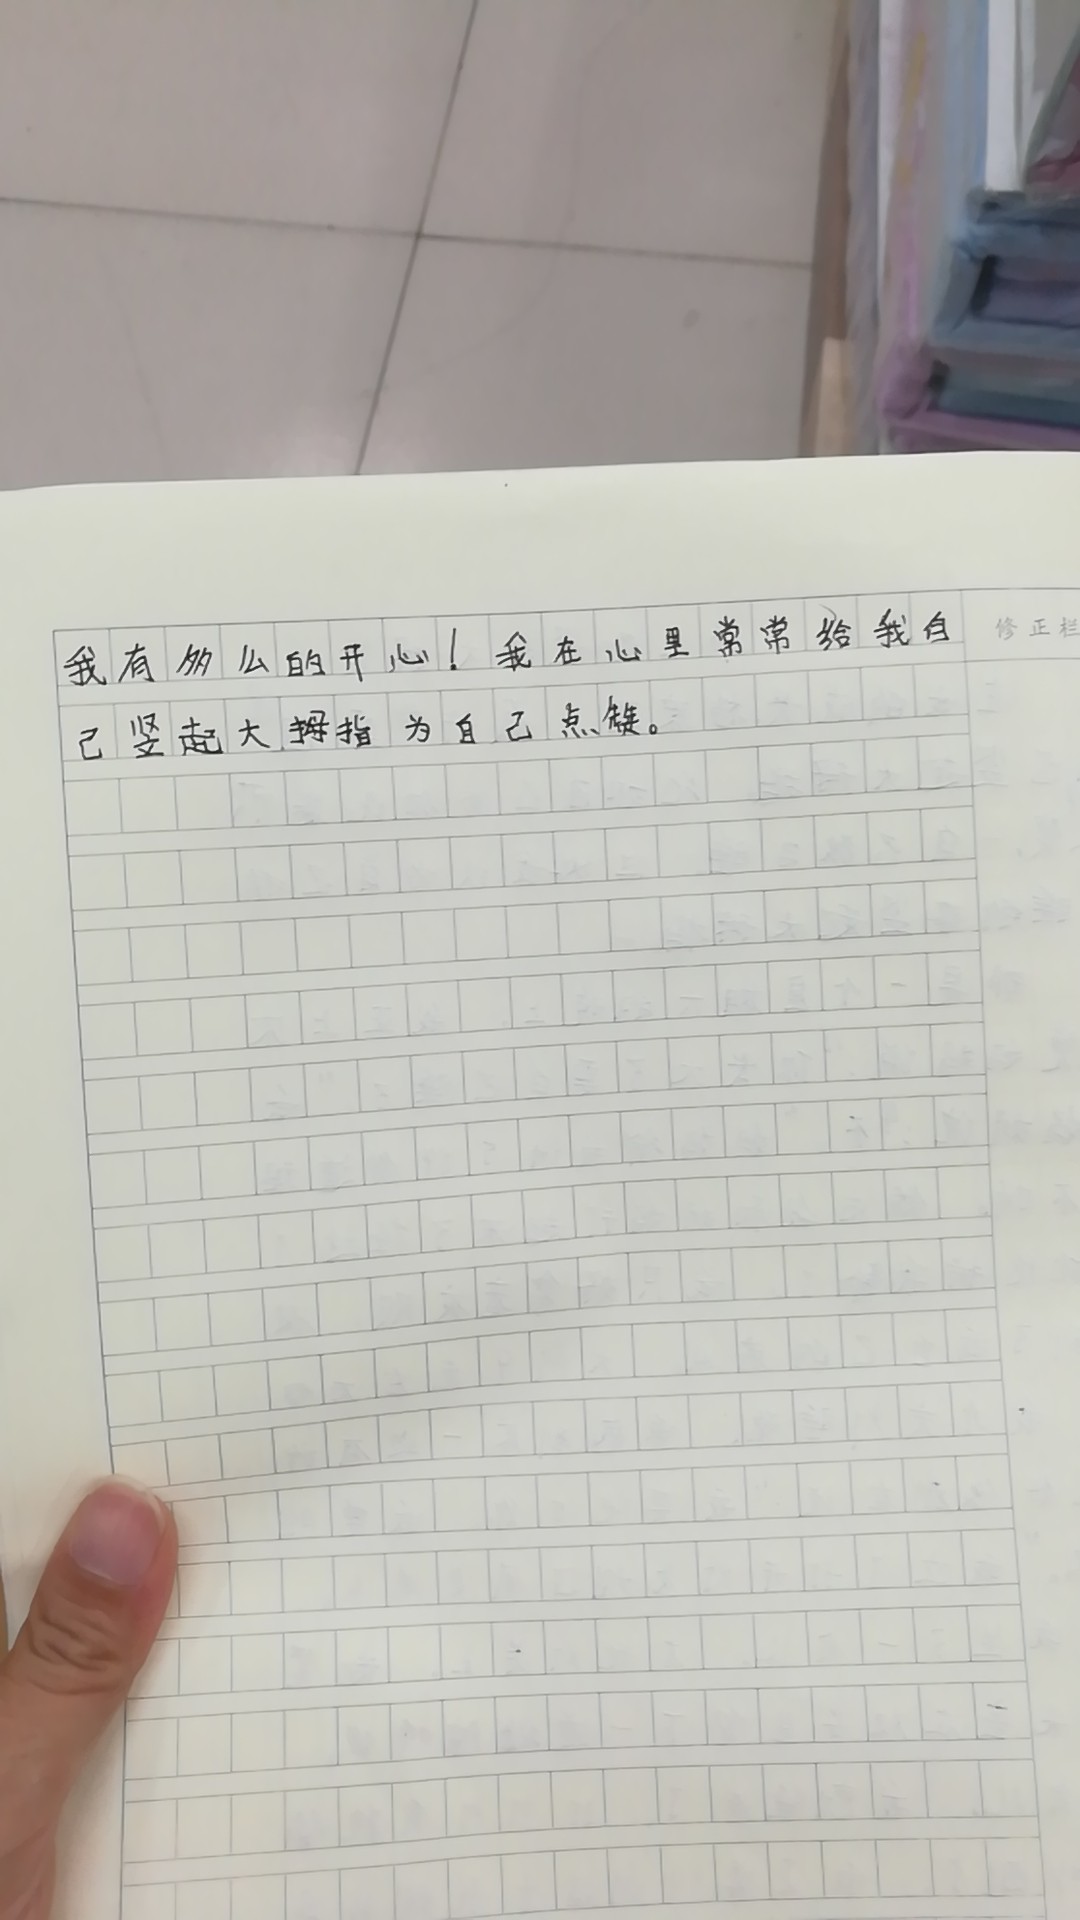 我有多么的开心！我在心里常常给我自
己竖起大拇指为自己点
修正栏